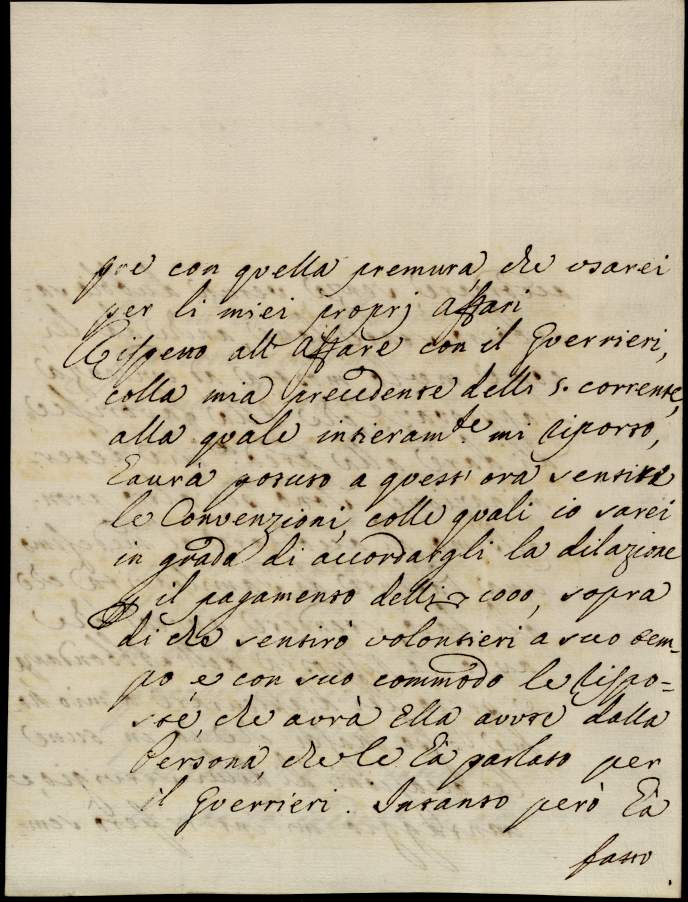 pre con quella premura, che usarei
per li miei proprj affari
Rispetto all' Affare con il Guerrieri,
colla mia precedente delli 5. corrente,
alla quale intieram.te mi riporto,
havrà potuto a quest' ora sentire
le Convenzioni, colle quali io sarei
in grado di accordargli la dilazione
il pagamento delli 1000, sopra
di che sentirò volontieri a suo tem-
po, e con suo commodo le Rispo=
ste, che avrà Ella avute dalla
Persona, che le hà parlato per
il Guerrieri. Intanto però hà
fatto